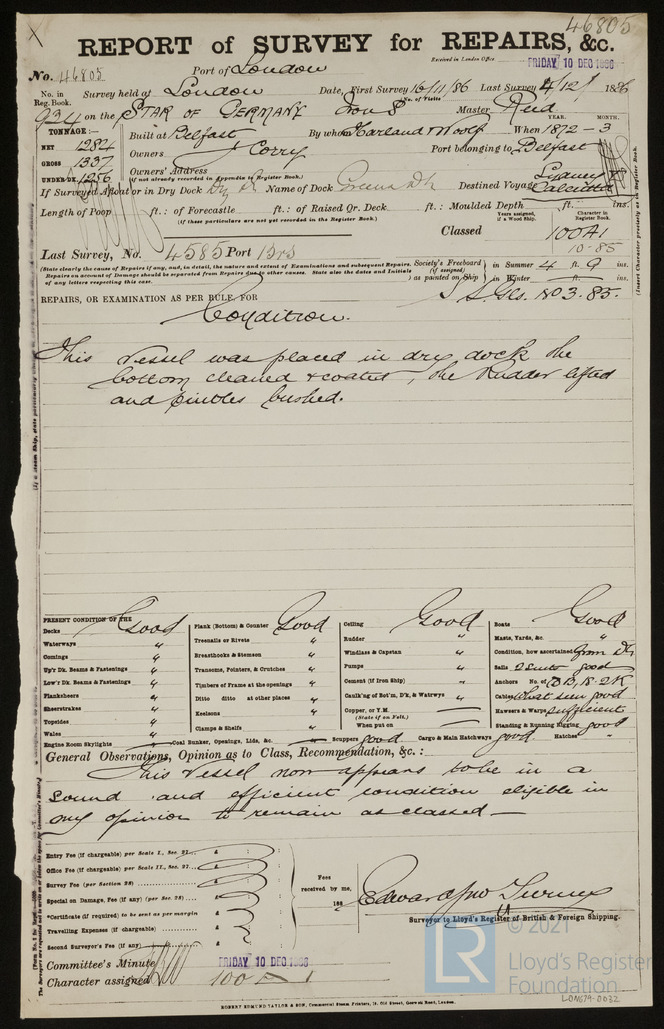 46805
REPORT of SURVEY for REPAIRS, &c.
Received in London Office FRIDAY 10 DEC 1886
No. 46805 Port of London
No. in Reg. Book. Survey held at London Date, First Survey 16/11/86 Last Survey 4/12/ 1886
No. of Visits
934 on the STAR OF GERMANY Iron S Master Reid
TONNAGE:—
NET 1284
GROSS 1337
UNDER DK. 1256
Built at Belfast By whom Harland & Wolff When 1872 – 3
YEAR. MONTH.
Owners J Corry Port belonging to Belfast
Owners' Address
(if not already recorded in Appendix to Register Book.)
If Surveyed Afloat or in Dry Dock Dry Dk Name of Dock Greens Dk Destined Voyage Sydney & Calcutta
Length of Poop ft.: of Forecastle ft.: of Raised Qr. Deck ft.: Moulded Depth ft. ins.
(If these particulars are not yet recorded in the Register Book.)
Years assigned, if a Wood Ship. Character in Register Book.
Classed 100A1
10-85
Last Survey, No. 4585 Port
(State clearly the cause of Repairs if any, and, in detail, the nature and extent of Examinations and subsequent Repairs. Repairs on account of Damage should be separated from Repairs due to other causes. State also the dates and Initials of any letters respecting this case.)
Society's Freeboard (if assigned) as painted on Ship in Summer 4 ft. 9 ins.
in Winter ft. ins.
REPAIRS, OR EXAMINATION AS PER RULE, FOR
Condition.
This Vessel was placed in dry dock the
bottom cleaned & coated, the Rudder lifted
and pintles bushed.
PRESENT CONDITION OF THE
Decks Good
Waterways "
Comings "
Up'r Dk. Beams & Fastenings "
Low'r Dk. Beams & Fastenings "
Planksheers "
Sheerstrakes "
Topsides "
Wales "
Engine Room Skylights
Plank (Bottom) & Counter Good
Treenails or Rivets "
Breasthooks & Stemson "
Transoms, Pointers, & Crutches "
Timbers of Frame at the openings "
Ditto ditto at other places "
Keelsons "
Clamps & Shelfs "
Coal Bunker, Openings, Lids, &c.
Ceiling Good
Rudder "
Windlass & Capstan "
Pumps "
Cement (if Iron Ship) "
Caulk'ng of Bot'm, D'k, & Watrwys "
Copper, or Y.M.
(State if on Felt.)
When put on
Scuppers good Cargo & Main Hatchways good Hatches "
Boats Good
Masts, Yards, &c. "
Condition, how ascertained from Dk
Sails 2 suits good
Anchors No. of
Cables what seen good
Hawsers & Warps sufficient
Standing & Running Rigging good
General Observations, Opinion as to Class, Recommendation, &c.:
This Vessel now appears to be in a
sound and efficient condition eligible in
my opinion to remain as classed —
Entry Fee (if chargeable) per Scale I., Sec. 27... £ : :
Office Fee (if chargeable) per Scale II., Sec. 27... £ : :
Survey Fee (per Section 28) £ : :
Special on Damage, Fee (if any) (per Sec. 28) £ : :
*Certificate (if required) to be sent as per margin
Travelling Expenses (if chargeable) £ : :
Second Surveyor's Fee (if any) £ : :
Fees received by me, 188
Surveyor to Lloyd's Register of British & Foreign Shipping.
Committee's Minute FRIDAY 10 DEC 1886
Character assigned 100 A 1
ROBERT EDMUND TAYLOR & SON, Commercial Steam Printers, 19, Old Street, Goswell Road, London.
LR
© 2021
Lloyd's Register
Foundation
LON679-0032